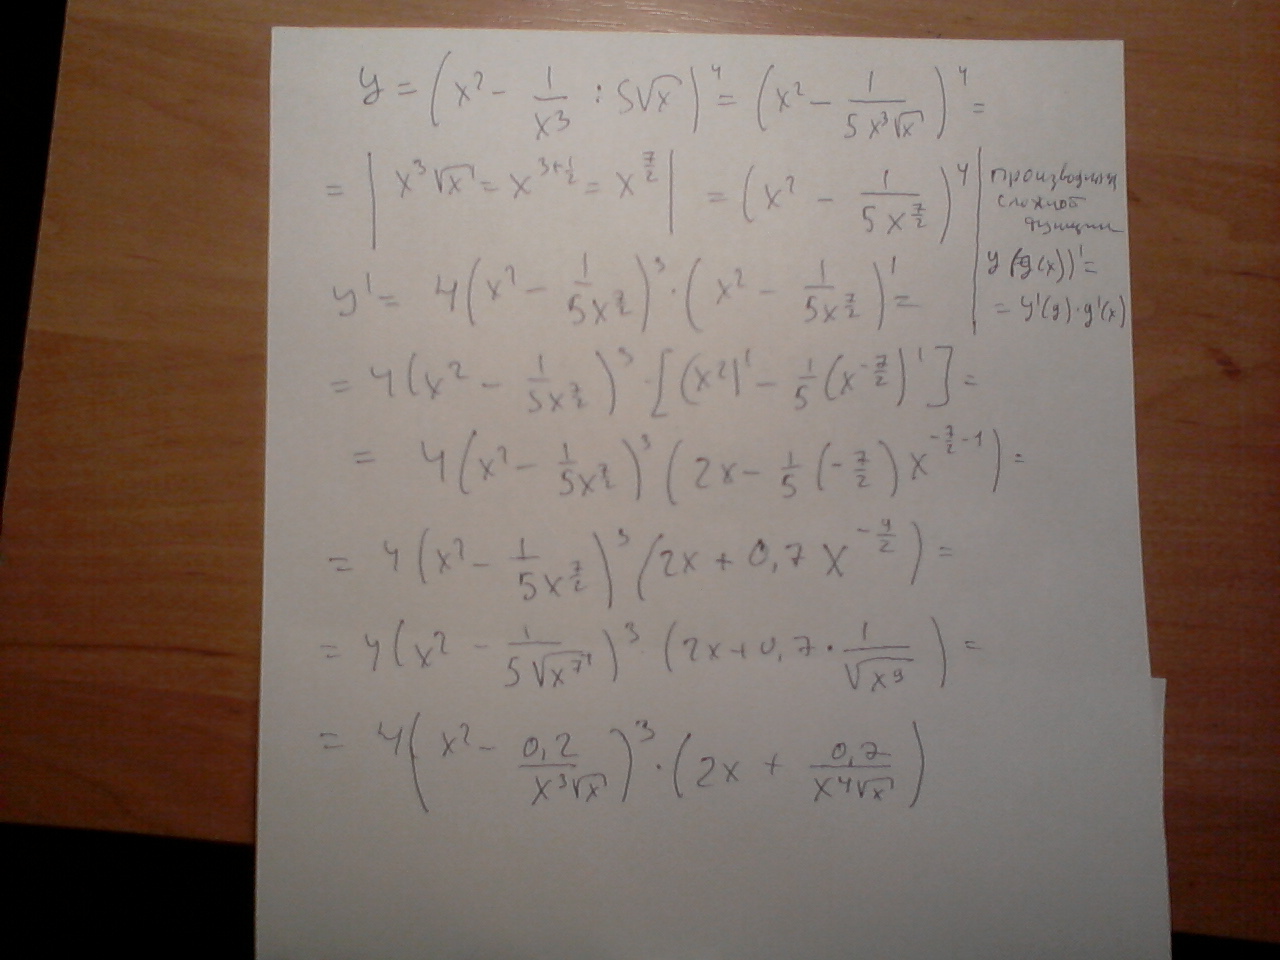 y = (x² - 1/x³ : 5√x)⁴ = (x² - 1/(5x³√x))⁴ =
= | x³√x = x^(3+1/2) = x^(7/2) | = (x² - 1/(5x^(7/2)))⁴
производная
сложной
функции
y(g(x))' =
= y'(g)·g'(x)
y' = 4(x² - 1/(5x^(7/2)))³ · (x² - 1/(5x^(7/2)))' =
= 4(x² - 1/(5x^(7/2)))³ · [(x²)' - 1/5 (x^(-7/2))'] =
= 4(x² - 1/(5x^(7/2)))³ (2x - 1/5 (-7/2) x^(-7/2-1)) =
= 4(x² - 1/(5x^(7/2)))³ (2x + 0,7 x^(-9/2)) =
= 4(x² - 1/(5√x⁷))³ · (2x + 0,7 · 1/√x⁹) =
= 4(x² - 0,2/(x³√x))³ · (2x + 0,7/(x⁴√x))